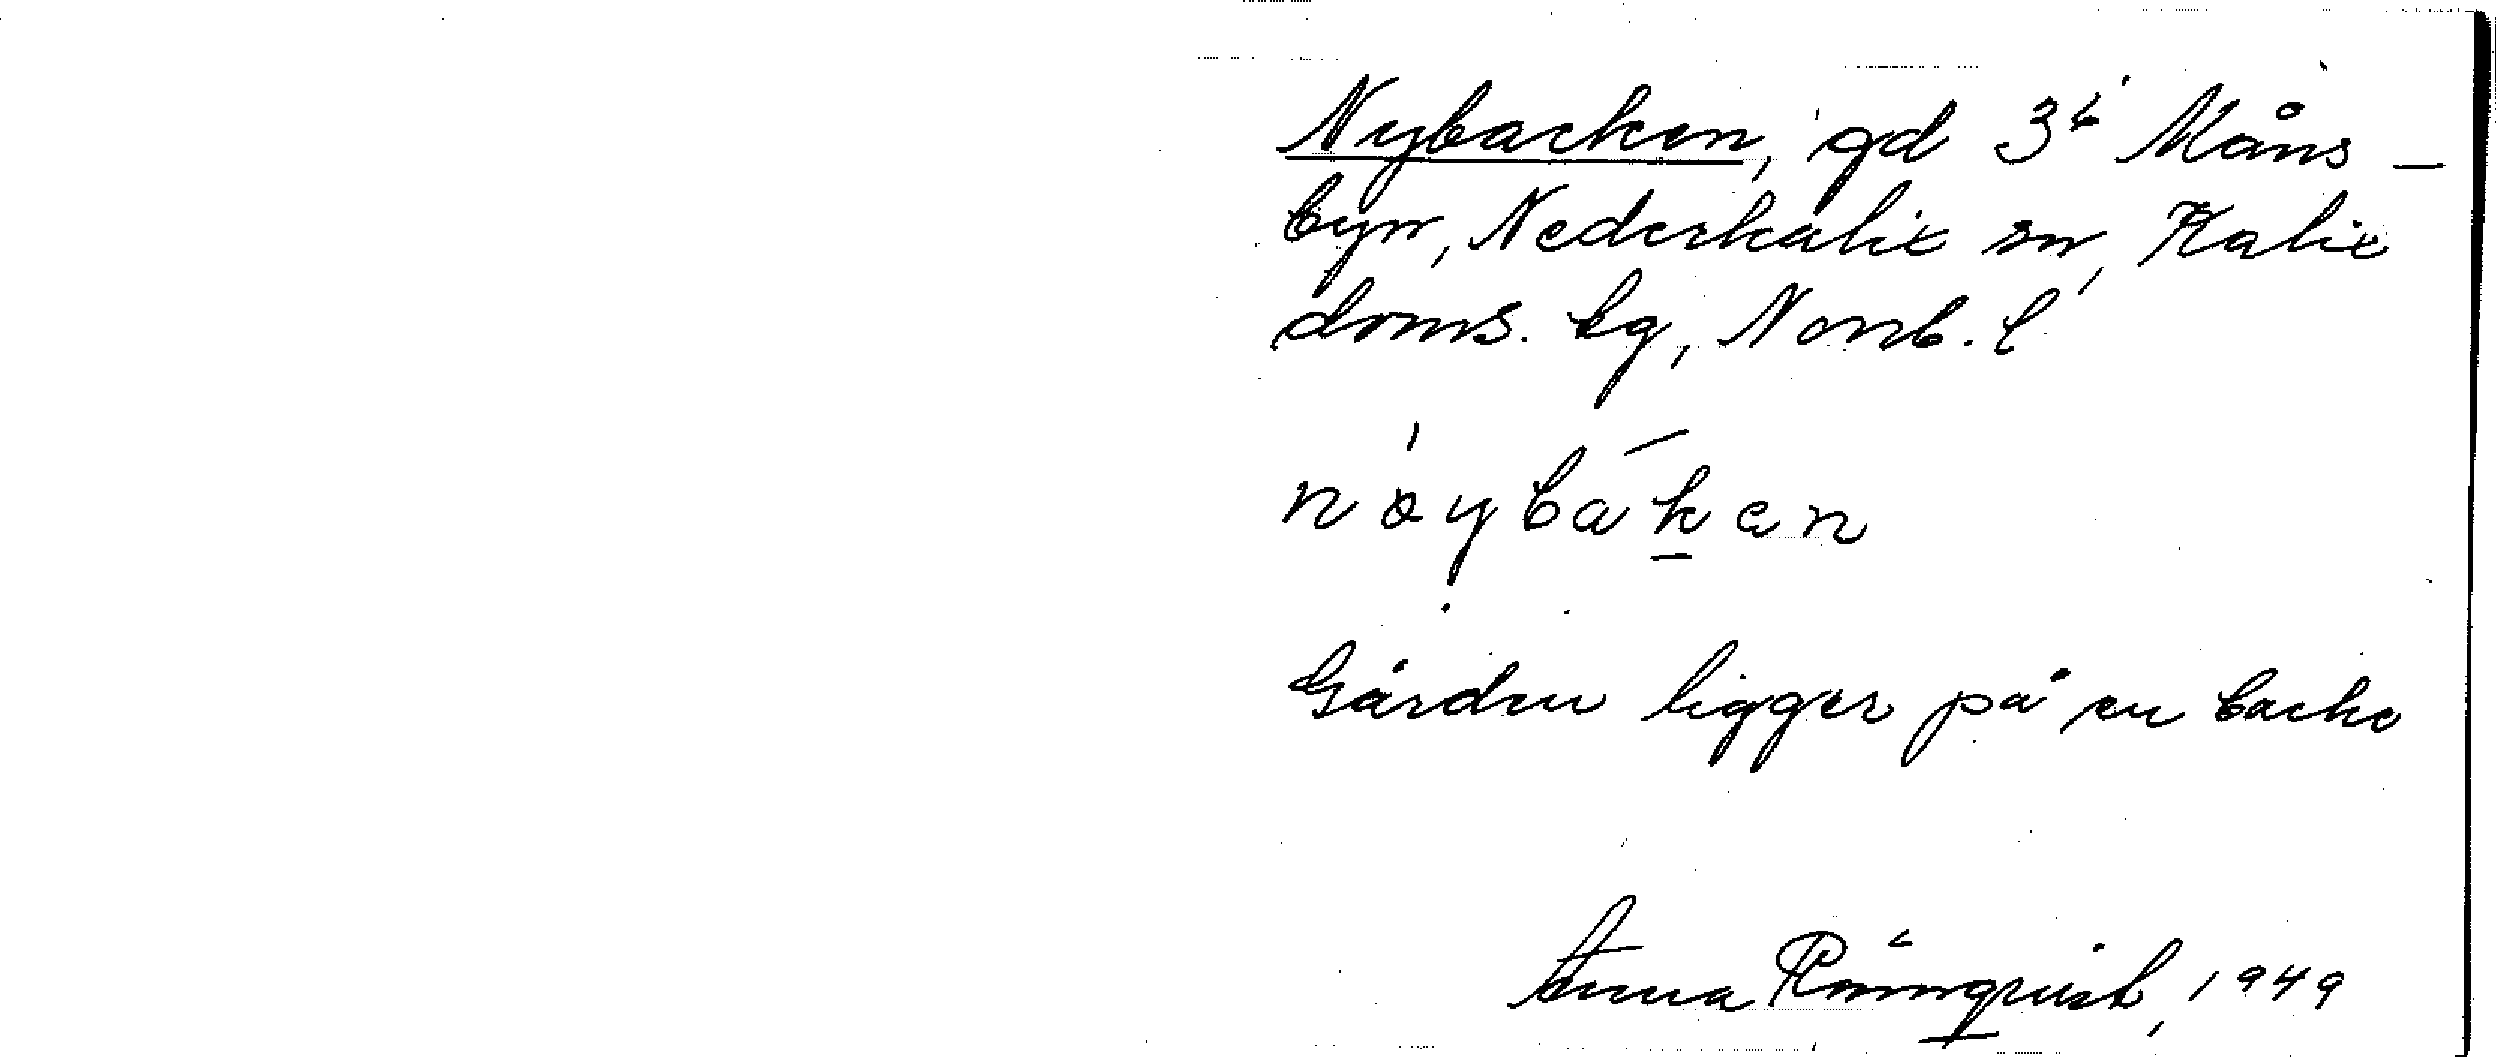 Nybacken, gd 3⁴ Måns-
byn, Nederkalix sn, Kalix
doms. tg, Norrb. l
nöybaken
Gården ligger på en backe
Anna Rönnqvist, 1949